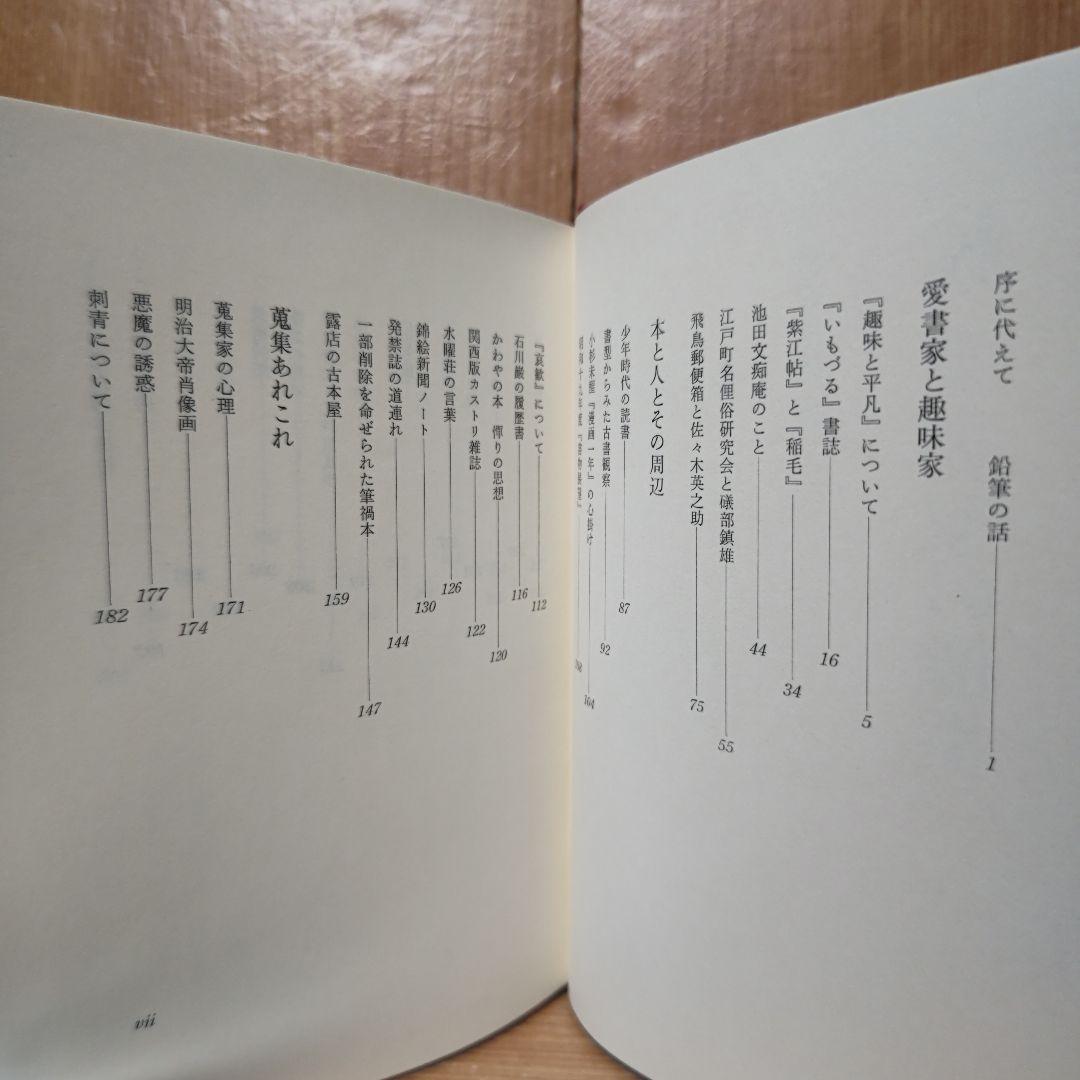 序に代えて　鉛筆の話 1
愛書家と趣味家
『趣味と平凡』について 5
『いもづる』書誌 16
『紫江帖』と『稲毛』 34
池田文痴庵のこと 44
江戸町名俚俗研究会と磯部鎮雄 55
飛鳥郵便箱と佐々木英之助 75
本と人とその周辺
少年時代の読書 87
書型からみた古書観察 92
小杉未醒『漫画一年』の心掛け 104
『哀歓』について 112
石川巌の履歴書 116
かわやの本　憚りの思想 120
関西版カストリ雑誌 122
水曜荘の言葉 126
錦絵新聞ノート 130
発禁誌の道連れ 144
一部削除を命ぜられた筆禍本 147
露店の古本屋 159
蒐集あれこれ
蒐集家の心理 171
明治大帝肖像画 174
悪魔の誘惑 177
刺青について 182
vii